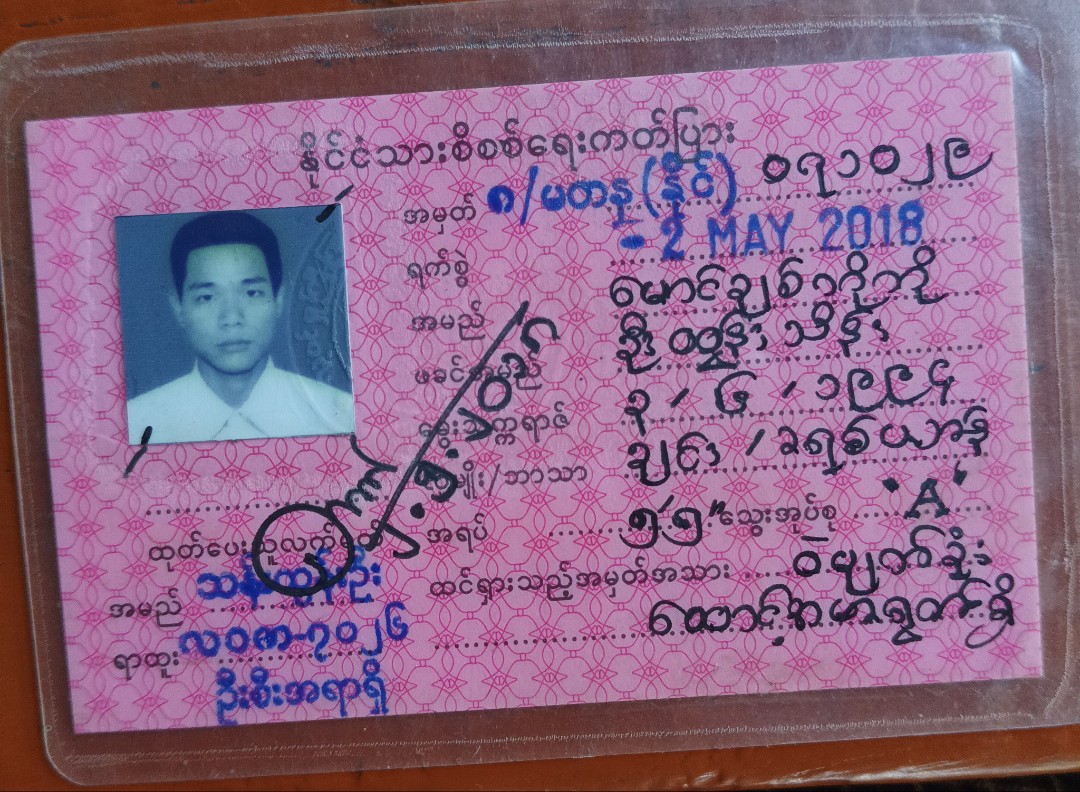 နိုင်ငံသားစိစစ်ရေးကတ်ပြား
အမှတ် ၈/မတန(နိုင်) ၀၇၁၀၂၉
ရက်စွဲ - 2 MAY 2018
အမည် မောင်ချစ်ကိုကို
ဖခင်အမည် ဦးထွန်းသိန်း
မွေးသက္ကရာဇ် ၃ / ၆ / ၁၉၉၄
လူမျိုး/ဘာသာ ချင်း / ခရစ်ယာန်
အရပ် ၅' ၅" သွေးအုပ်စု 'A'
ထင်ရှားသည့်အမှတ်အသား ဝဲမျက်ခုံး
ထုတ်ပေးသူလက်မှတ်
အမည် သန်းထွန်းဦး
ရာထူး လဝက-၇၀၂၆
ဦးစီးအရာရှိ